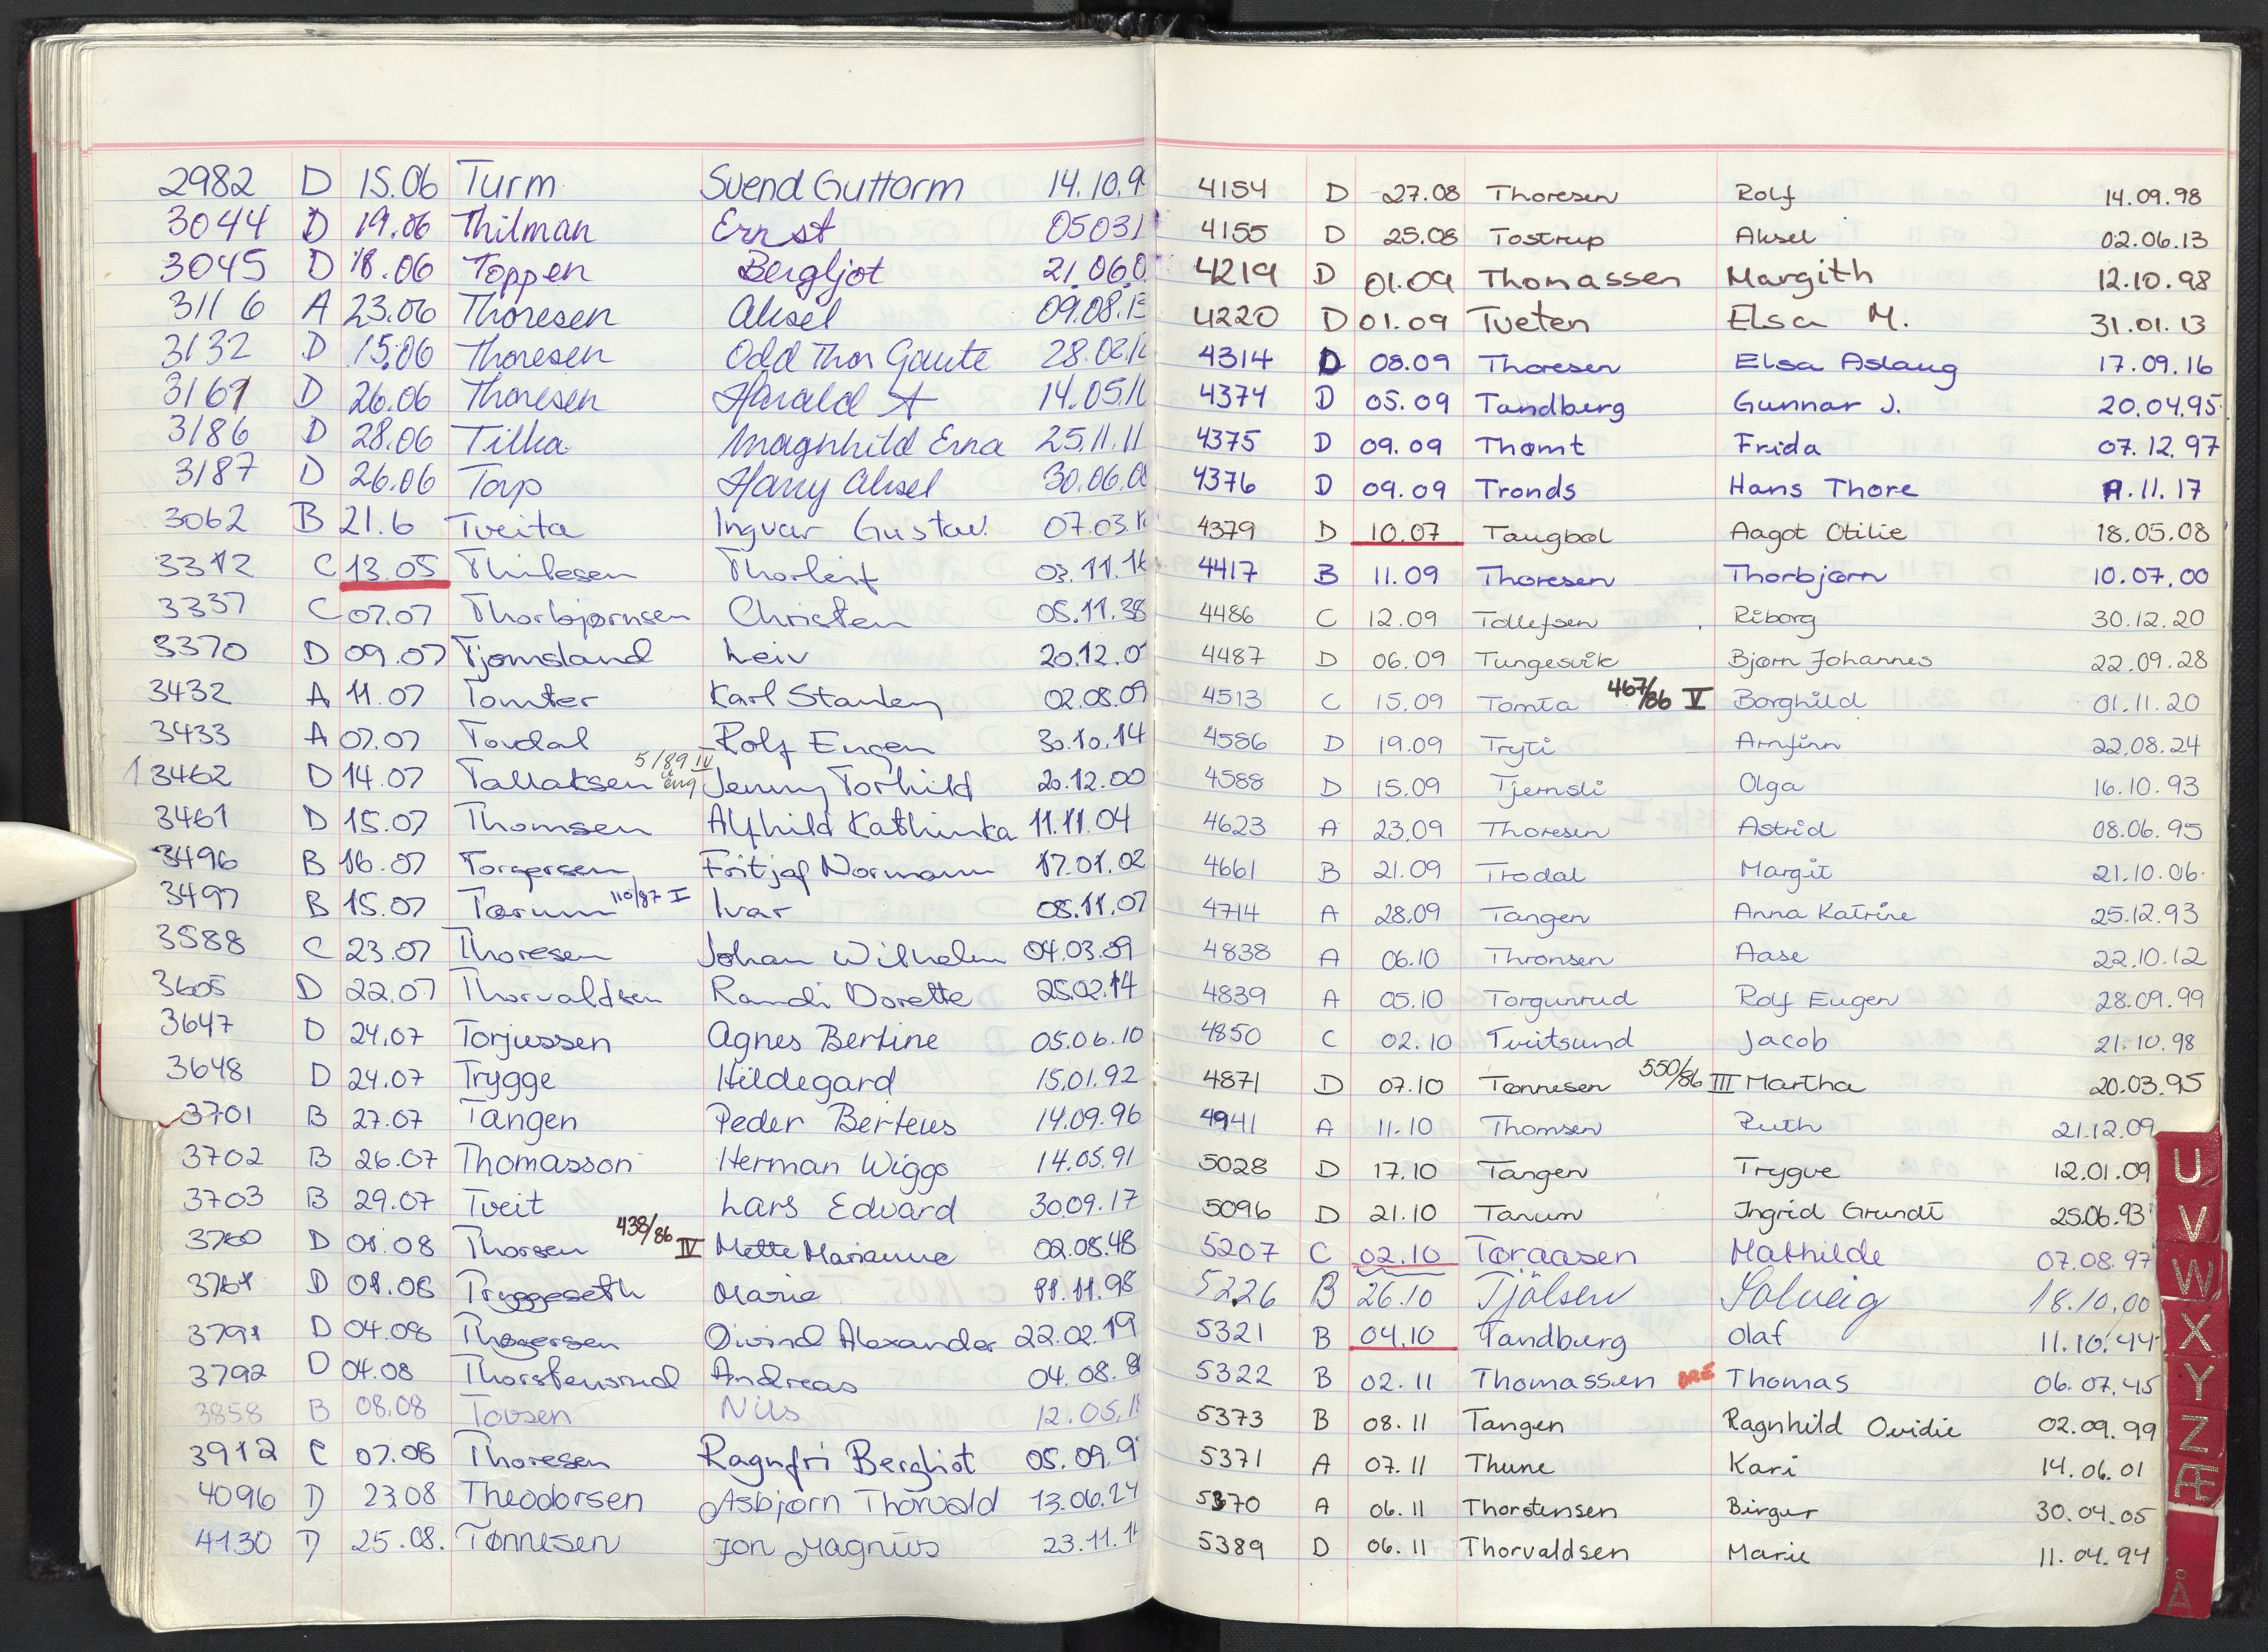 2982 D 15.06 Turm Svend Guttorm 14.10.9
3044 D 19.06 Thilman Ernst 05031
3045 D 18.06 Toppen Bergljot 21.06.0
3116 A 23.06 Thoresen Aksel 09.08.13
3132 D 15.06 Thoresen Odd Thor Gaute 28.02.1
3161 D 26.06 Thoresen Harald A 14.05.1
3186 D 28.06 Tilka Magnhild Erna 25.11.11
3187 D 26.06 Torp Harry Aksel 30.06.0
3062 B 21.6 Tveita Ingvar Gustav. 07.03.1
3312 C 13.05 Thilesen Thorleif 03.11.1
3337 C 07.07 Thorbjørnsen Christen 05.11.38
3370 D 09.07 Tjomsland Leiv 20.12.0
3432 A 11.07 Tomter Karl Stanley 02.08.09
3433 A 07.07 Tovdal Rolf Eugen 30.10.14
13462 D 14.07 Tallaksen 5/89 IV Jenny Torhild 20.12.00
3461 D 15.07 Thomsen Alfhild Kathinka 11.11.04
3496 B 16.07 Torgersen Fritjof Normann 17.01.02
3497 B 15.07 Tørum 110/87 I Ivar 08.11.07
3588 C 23.07 Thoresen Johan Wilhelm 04.03.09
3605 D 22.07 Thorvaldsen Randi Dorette 25.02.14
3647 D 24.07 Torjussen Agnes Bertine 05.06.10
3648 D 24.07 Trygge Hildegard 15.01.92
3701 B 27.07 Tangen Peder Berteus 14.09.96
3702 B 26.07 Thomasson Herman Wiggo 14.05.91
3703 B 29.07 Tveit Lars Edvard 3009.17
3760 D 01.08 Thorsen 438/86 IV Mette Marianne 02.08.48
3761 D 01.08 Tryggeseth Marie 11.11.98
3791 D 04.08 Thøgersen Øivind Alexander 22.02.19
3792 D 04.08 Thorstensrud Andreas 04.08.
3858 B 08.08 Tovsen Nils 12.05.1
3912 C 07.08 Thoresen Ragnfri Bergliot 05.09.9
4096 D 23.08 Theodorsen Asbjørn Thorvald 13.06.24
4130 D 25.08. Tønnesen Jon Magnus 23.11.1
4154 D 27.08 Thoresen Rolf 14.09.98
4155 D 25.08 Tostrup Aksel 02.06.13
4219 D 01.09 Thomassen Margith 12.10.98
4220 D 01.09 Tveten Elsa M. 31.01.13
4314 D 08.09 Thoresen Elsa Aslaug 17.09.16
4374 D 05.09 Tandberg Gunnar J. 20.04.95
4375 D 09.09 Thømt Frida 07.12.97
4376 D 09.09 Tronds Hans Thore .11.17
4379 D 10.07 Taugbøl Aagot Otilie 18.05.08
4417 B 11.09 Thoresen Thorbjørn 10.07.00
4486 C 12.09 Tollefsen Riborg 30.12.20
4487 D 06.09 Tungesvik Bjørn Johannes 22.09.28
4513 C 15.09 Tomta 467/86 V Borghild 01.11.20
4586 D 19.09 Tryti Arnfinn 22.08.24
4588 D 15.09 Tjernsli Olga 16.10.93
4623 A 23.09 Thoresen Astrid 08.06.95
4661 B 21.09 Trodal Margit 21.10.06
4714 A 28.09 Tangen Anna Katrine 25.12.93
4838 A 06.10 Thronsen Aase 22.10.12
4839 A 05.10 Torgunrud Rolf Eugen 28.09.99
4850 C 02.10 Tveitsund Jacob 21.10.98
4871 D 07.10 Tønnesen 550/86 III Martha 20.03.95
4941 A 11.10 Thomsen Ruth 21.12.09
5028 D 17.10 Tangen Trygve 12.01.09
5096 D 21.10 Tanum Ingrid Grundt 25.06.93
5207 C 02.10 Toraasen Mathilde 07.08.97
5226 B 26.10 Tjölsen Solveig 18.10.00
5321 B 04.10 Tandberg Olaf 11.10.44
5322 B 02.11 Thomassen BRE Thomas 06.07.45
5373 B 08.11 Tangen Ragnhild Ovidie 02.09.99
5371 A 07.11 Thune Kari 14.06.01
5370 A 06.11 Thorstensen Birger 30.04.05
5389 D 06.11 Thorvaldsen Marie 11.04.94
U
V
W
X
Y
Z
Æ
Å